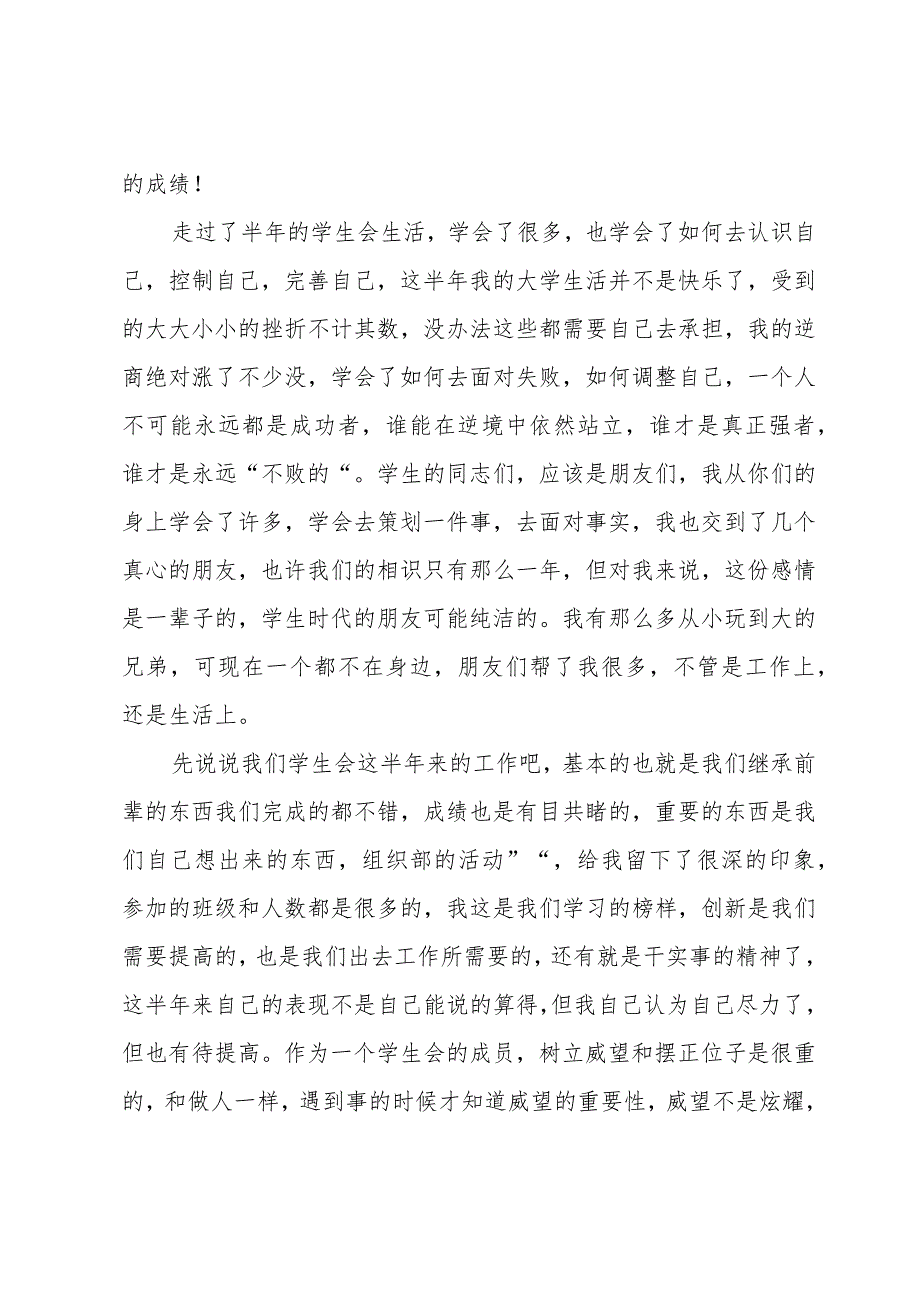 的成绩！
走过了半年的学生会生活，学会了很多，也学会了如何去认识自
己，控制自己，完善自己，这半年我的大学生活并不是快乐了，受到
的大大小小的挫折不计其数，没办法这些都需要自己去承担，我的逆
商绝对涨了不少没，学会了如何去面对失败，如何调整自己，一个人
不可能永远都是成功者，谁能在逆境中依然站立，谁才是真正强者，
谁才是永远“不败的“。学生的同志们，应该是朋友们，我从你们的
身上学会了许多，学会去策划一件事，去面对事实，我也交到了几个
真心的朋友，也许我们的相识只有那么一年，但对我来说，这份感情
是一辈子的，学生时代的朋友可能纯洁的。我有那么多从小玩到大的
兄弟，可现在一个都不在身边，朋友们帮了我很多，不管是工作上，
还是生活上。
先说说我们学生会这半年来的工作吧，基本的也就是我们继承前
辈的东西我们完成的都不错，成绩也是有目共睹的，重要的东西是我
们自己想出来的东西，组织部的活动”“，给我留下了很深的印象，
参加的班级和人数都是很多的，我这是我们学习的榜样，创新是我们
需要提高的，也是我们出去工作所需要的，还有就是干实事的精神了，
这半年来自己的表现不是自己能说的算得，但我自己认为自己尽力了，
但也有待提高。作为一个学生会的成员，树立威望和摆正位子是很重
的，和做人一样，遇到事的时候才知道威望的重要性，威望不是炫耀，